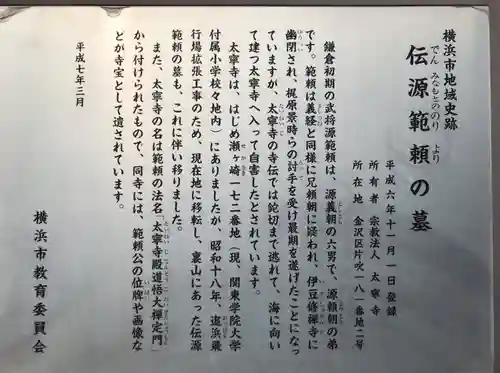 横浜市地域史跡
伝源範頼の墓
でんみなもとののりより
平成六年十一月一日登録
所有者 宗教法人 太寧寺
所在地 金沢区片吹一八一番地二号
鎌倉初期の武将源範頼は、源義朝の六男で、源頼朝の弟
です。範頼は義経と同様に兄頼朝に疑われ、伊豆修禅寺に
幽閉され、梶原景時らの討手を受け最期を遂げたことになっ
ていますが、太寧寺の寺伝では鉈切まで逃れて、海に向い
て建つ太寧寺へ入って自害したとされています。
太寧寺は、はじめ瀬ヶ崎一七二番地(現、関東学院大学
付属小学校々地内)にありましたが、昭和十八年、追浜飛
行場拡張工事のため、現在地に移転し、裏山にあった伝源
範頼の墓も、これに伴い移りました。
また、太寧寺の名は範頼の法名「太寧寺殿道悟大禅定門」
から付けられたもので、同寺には、範頼公の位牌や画像な
どが寺宝として遺されています。
平成七年三月
横浜市教育委員会